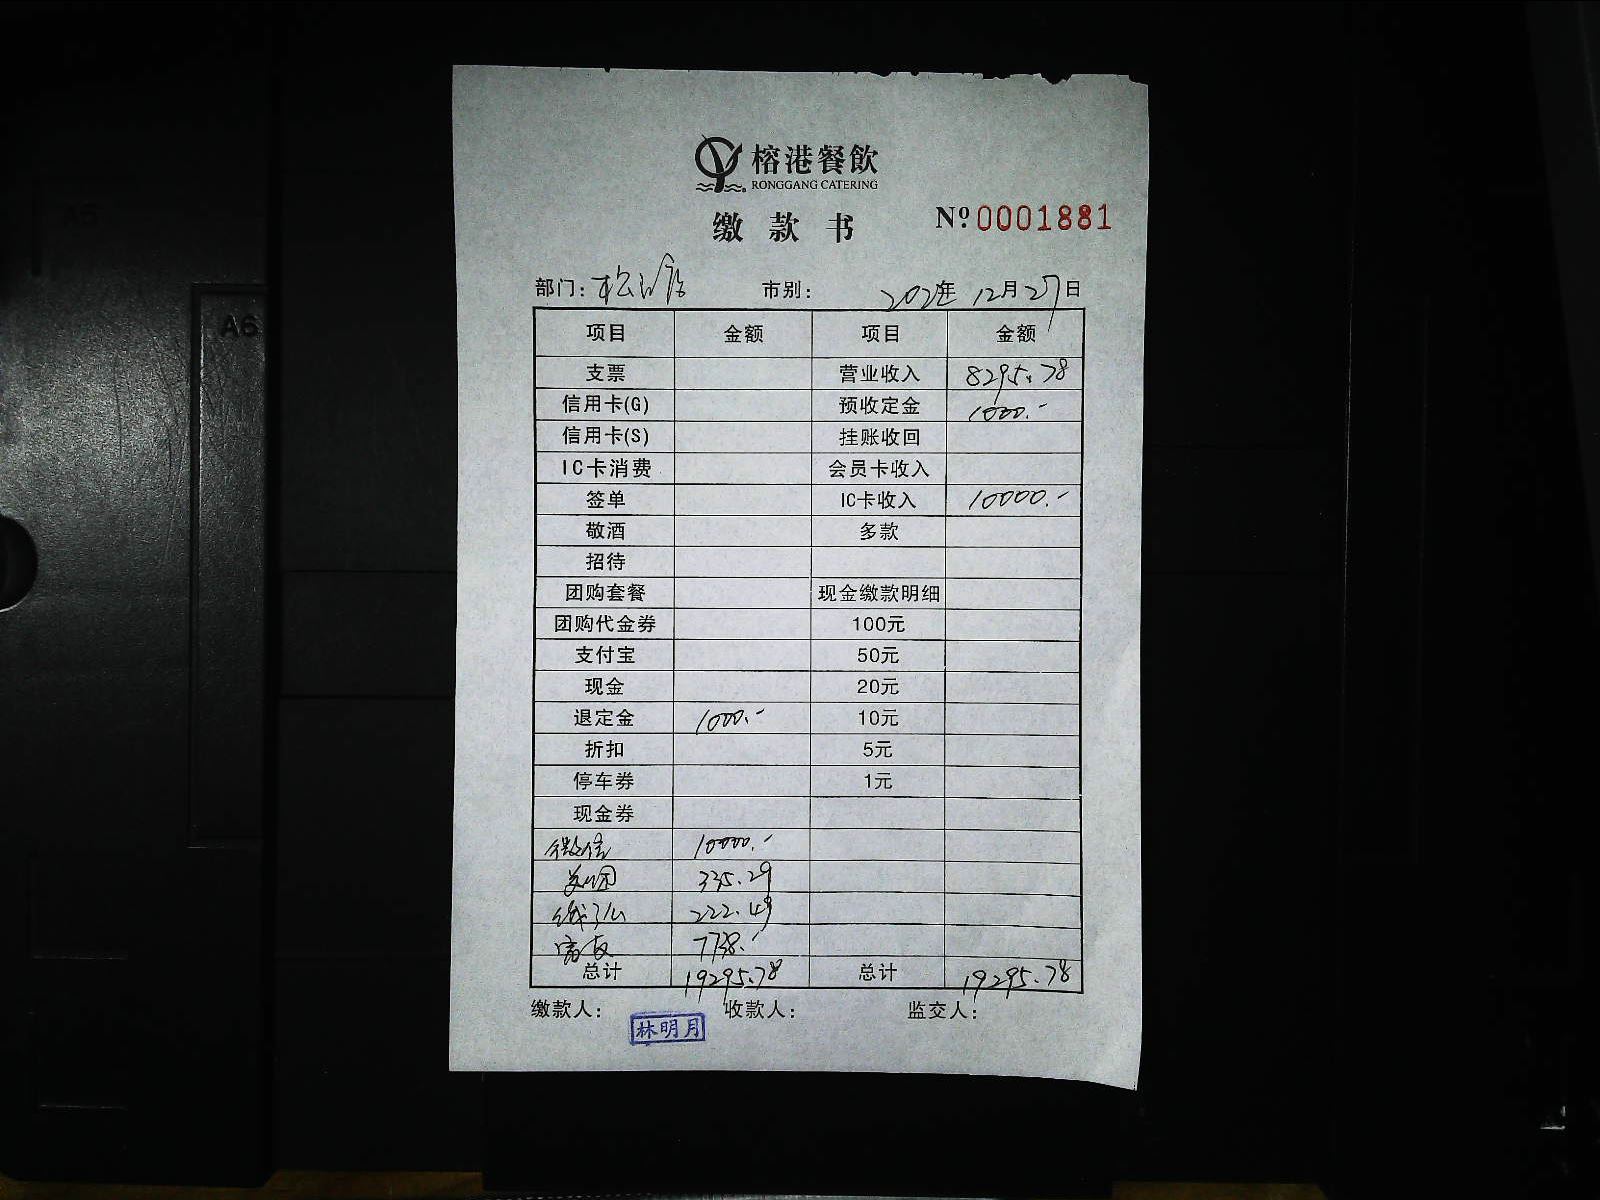 A5
A6
榕港餐飲
RONGGANG CATERING
缴款书
№0001881
部门: 市别: 年 12月27日
项目 金额 项目 金额
支票 营业收入 8295.78
信用卡(G) 预收定金 1000.-
信用卡(S) 挂账收回
IC卡消费 会员卡收入
签单 IC卡收入 10000.-
敬酒 多款
招待
团购套餐 现金缴款明细
团购代金券 100元
支付宝 50元
现金 20元
退定金 1000.- 10元
折扣 5元
停车券 1元
现金券
微信 10000.-
美团 335.29
222.49
7738.-
总计 19295.78 总计 19295.78
缴款人: 收款人: 监交人:
林明月